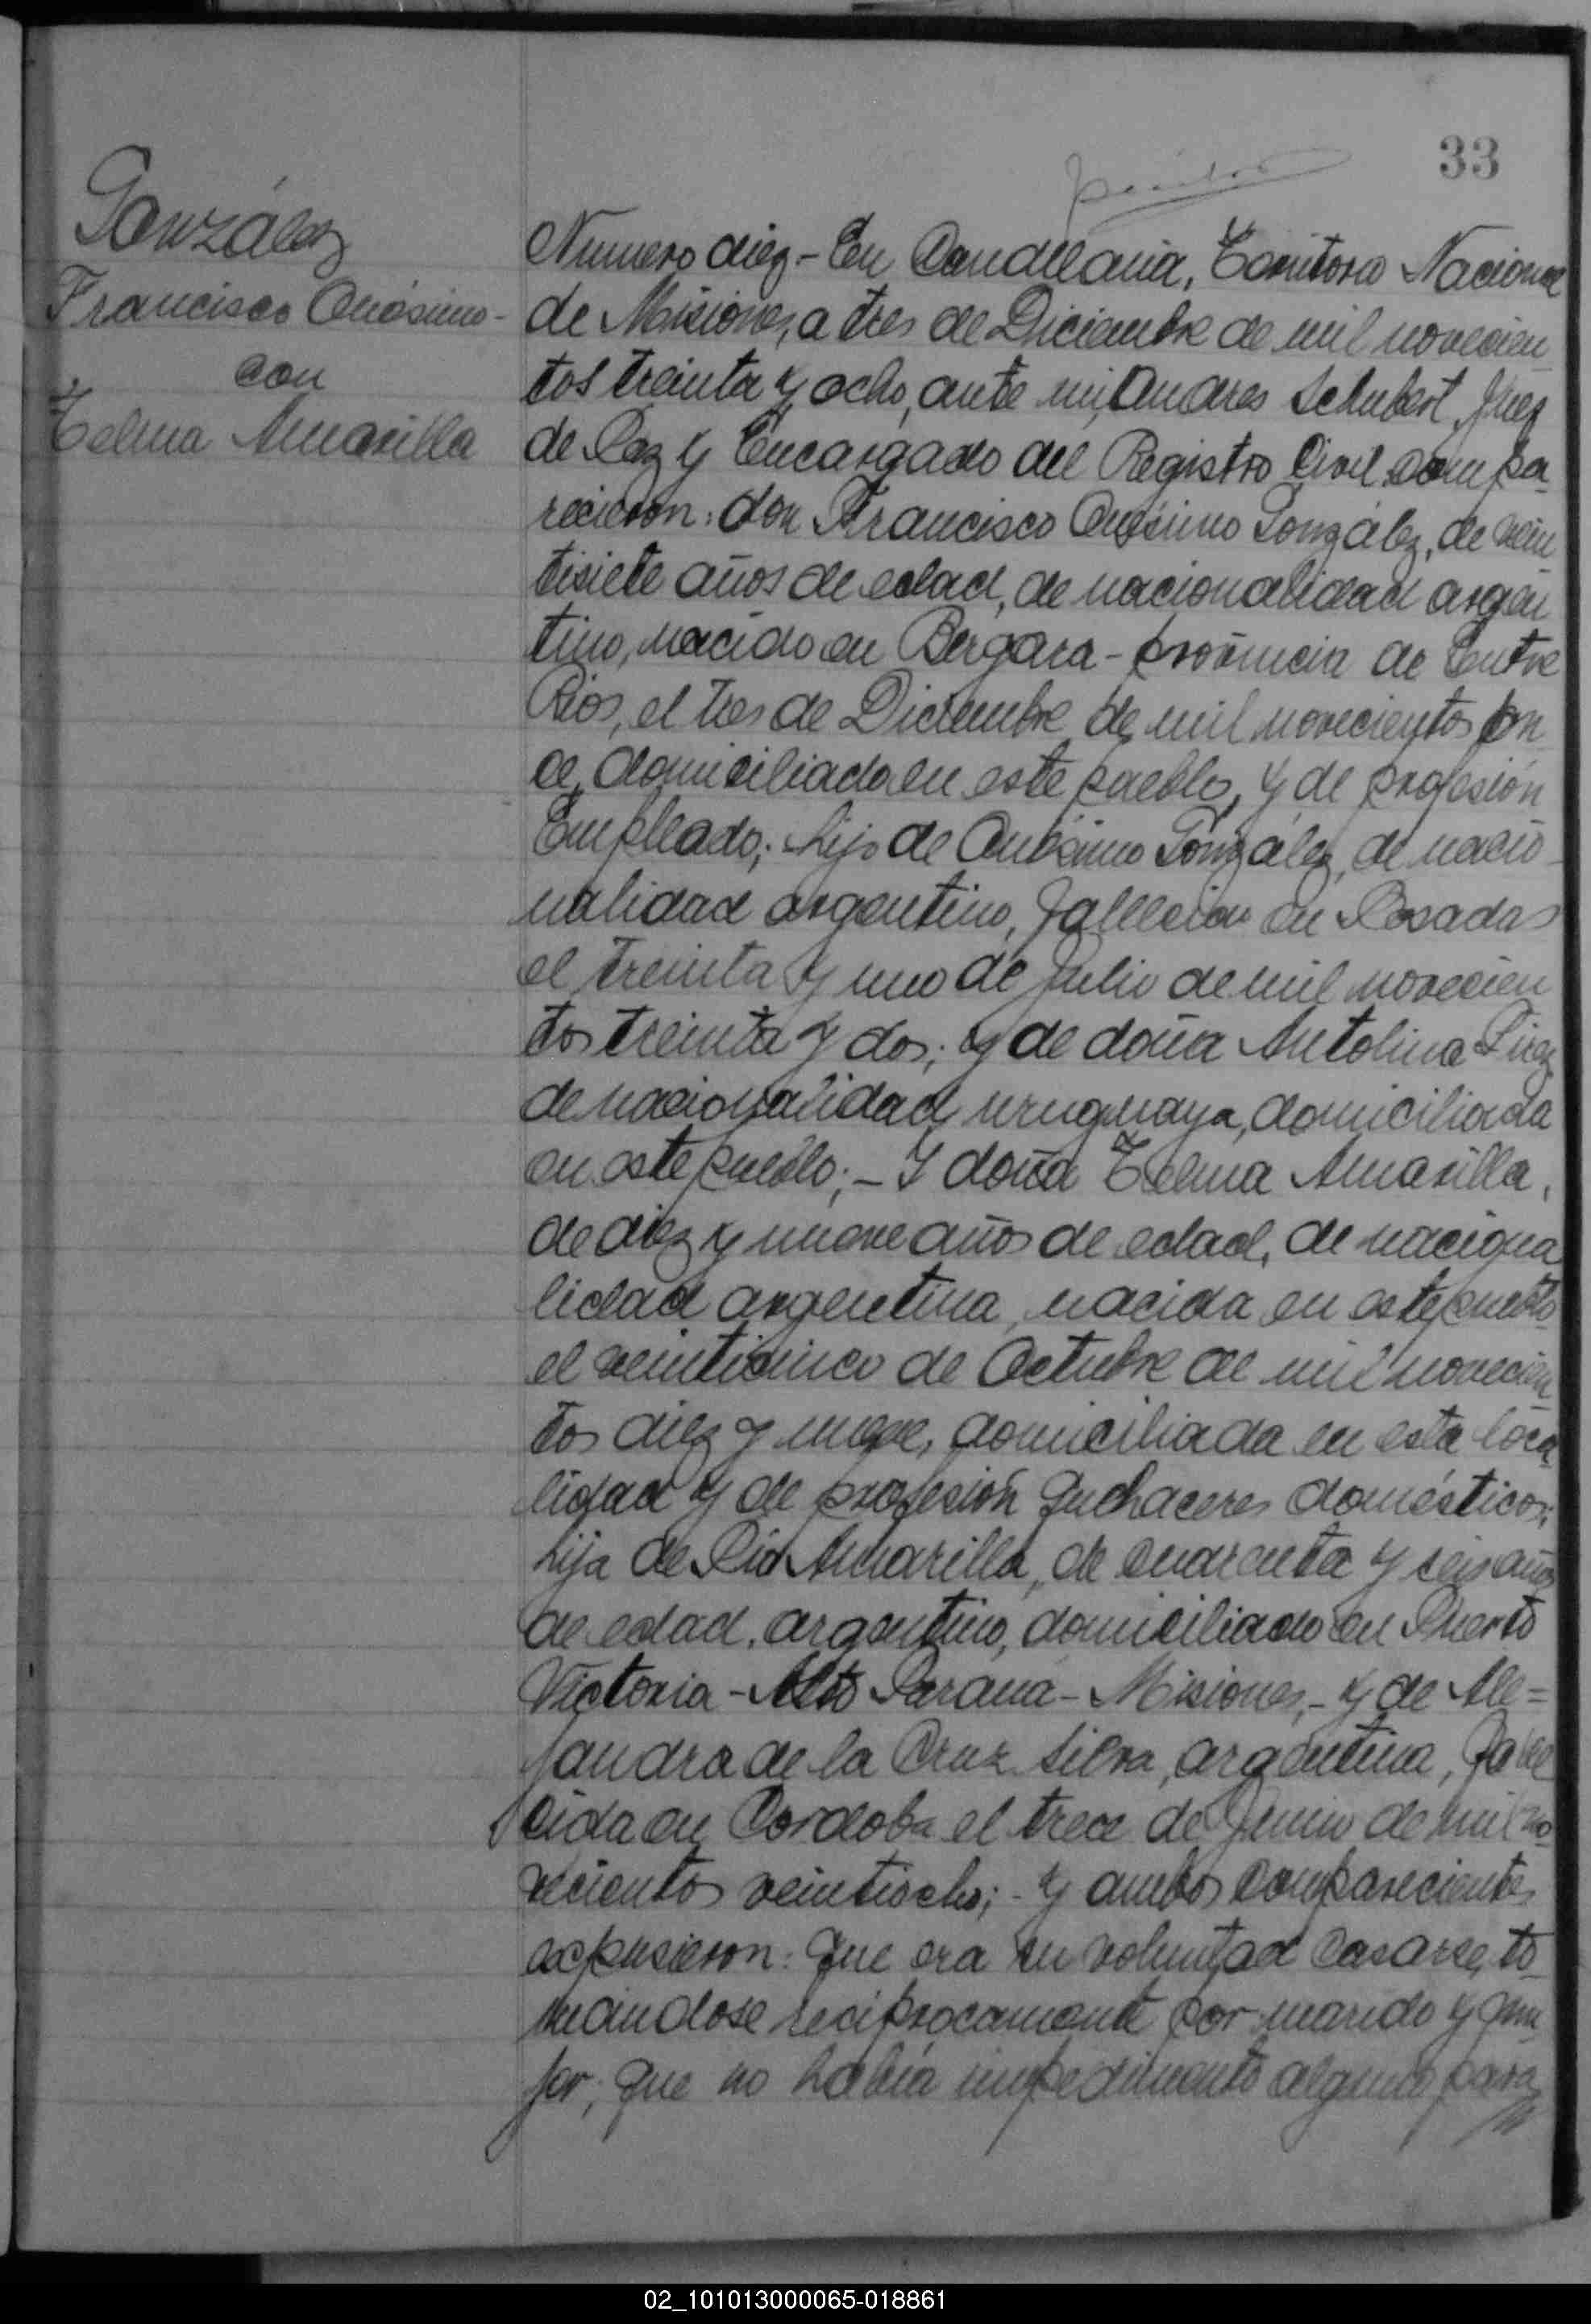 33
González
Francisco Onésimo-
con
Telma Amarilla
Numero diez - En Candelaria, Territorio Nacional
de Misiones, a tres de Diciembre de mil novecien
tos treinta y ocho, ante mi, Andres Schubert, Juez
de Paz y Encargado del Registro Civil compa-
recieron: don Francisco Onésimo González, de vein
tisiete años de edad, de nacionalidad argen
tino, nacido en Bergara - provincia de Entre
Rios, el tres de Diciembre de mil novecientos on
ce, domiciliado en este pueblo, y de profesión
Empleado; hijo de Onésimo González, de nacio-
nalidad argentino, fallecido en Posadas
el treinta y uno de Julio de mil novecien
tos treinta y dos; y de doña Antolina
de nacionalidad uruguaya, domiciliada
en este pueblo; - Y doña Telma Amarilla,
de diez y nueve años de edad, de naciona
lidad argentina, nacida en este pueblo
el veinticinco de Octubre de mil novecien
tos diez y nueve, domiciliada en esta loca
lidad y de profesión quehaceres domésticos;
hija de Pio Amarilla, de cuarenta y seis años
de edad, argentino, domiciliado en Puerto
Victoria - Alto Parana - Misiones, - y de Ale=
jandra de la Cruz Silva, argentina, falle
cida en Cordoba el trece de Junio de mil no
vecientos veintiocho; - y ambos comparecientes
expusieron: que era su voluntad casarse, to-
mandose reciprocamente por marido y mu
jer; que no habia impedimento alguno para
02_101013000065-018861